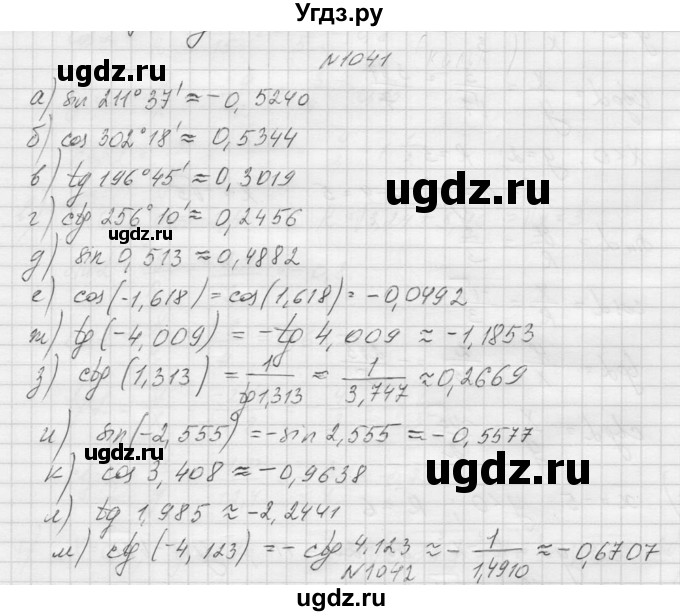 Угдз.ру
N1041
ugdz.ru
а) sin 211°37' ≈ -0,5240
б) cos 302°18' ≈ 0,5344
ugdz.ru
в) tg 196°45' ≈ 0,3019
г) ctg 256°10' ≈ 0,2456
ugdz.ru
д) sin 0,513 ≈ 0,4882
ugdz.ru
е) cos(-1,618) = cos(1,618) = -0,0492
ж) tg(-4,009) = -tg 4,009 ≈ -1,1853
з) ctg (1,313) = 1/tg1,313 = 1/3,747 ≈ 0,2669
и) sin(-2,555) = -sin 2,555 ≈ -0,5577
ugdz.ru
ugdz.ru
к) cos 3,408 ≈ -0,9638
л) tg 1,985 ≈ -2,2441
м) ctg (-4,123) = - ctg 4,123 ≈ - 1/1,4910 ≈ -0,6707
N1042
ugdz.ru
ugdz.ru